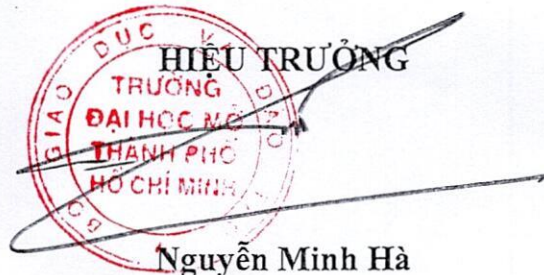 HIỆU TRƯỞNG
BỘ GIÁO DỤC VÀ ĐÀO
TRƯỜNG
ĐẠI HỌC MỞ
THÀNH PHỐ
HỒ CHÍ MINH
Nguyễn Minh Hà